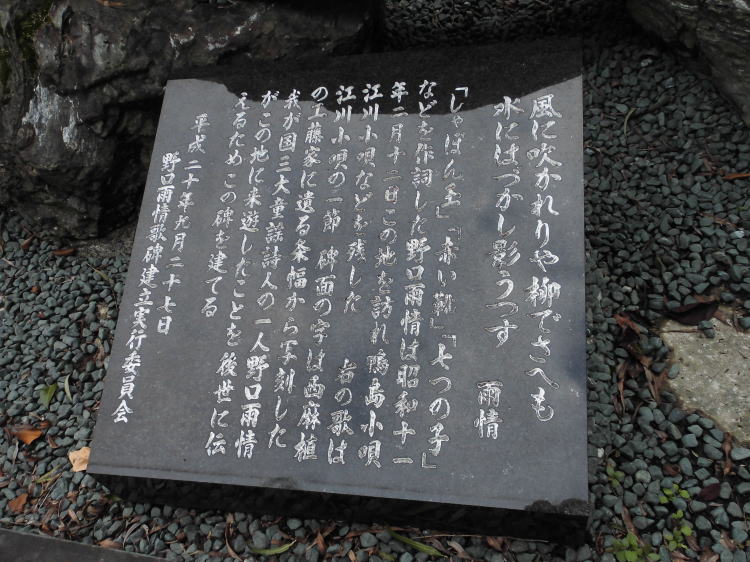 風に吹かれりや柳でさへも
水にはづかし影うつす
雨情
「しゃぼん玉」「赤い靴」「七つの子」
などを作詞した野口雨情は昭和十一
年二月十二日この地を訪れ鴨島小唄
江川小唄などを残した　右の歌は
江川小唄の一節　碑面の字は西麻植
の工藤家に遺る条幅から写刻した
我が国三大童謡詩人の一人野口雨情
がこの地に来遊したことを後世に伝
えるためこの碑を建てる
平成二十年九月二十七日
野口雨情歌碑建立実行委員会